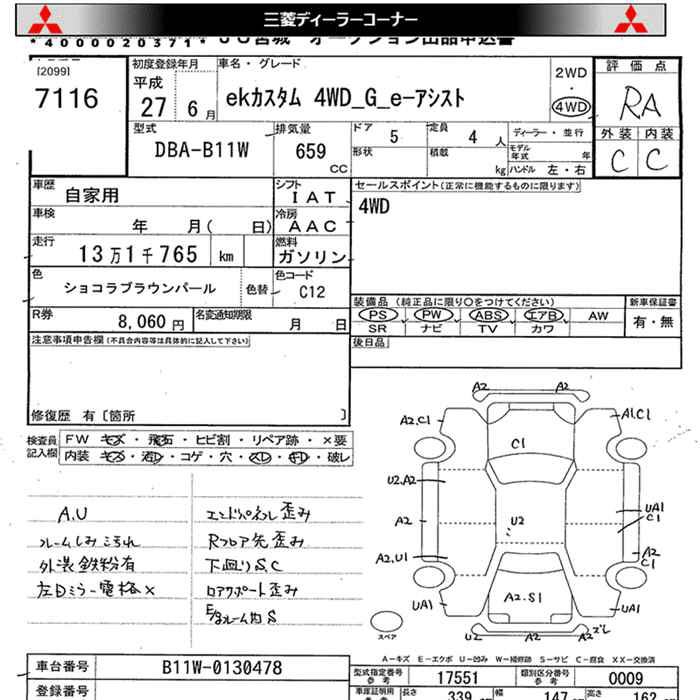 三菱ディーラーコーナー
*4000020371* ＪＵ宮城 オークション出品申込書
[2099]
7116
初度登録年月
平成
27 6月
車名・グレード
ekカスタム 4WD_G_e-アシスト
2WD
・
4WD
評価点
RA
外装 内装
C C
型式
DBA-B11W
排気量
659
CC
ドア 5
形状
定員 4 人
積載 kg
ディーラー・並行
モデル年式 年
ハンドル 左・右
車歴 自家用
シフト IAT
セールスポイント(正常に機能するものに限ります)
4WD
車検 年 月( 日)
冷房 AAC
走行 13万1千765 km
燃料 ガソリン
色 ショコラブラウンパール 色替
色コード C12
装備品 (純正品に限り○をつけてください)
新車保証書
PS PW ABS エアB AW
SR ナビ TV カワ
有・無
R券 8,060 円
名変通知期限 月 日
注意事項申告欄(不具合内容等は具体的に記入して下さい)
後日品
修復歴 有〔箇所 〕
検査員記入欄
FW キズ・飛石・ヒビ割・リペア跡・×要
内装 キズ・汚レ・コゲ・穴・スレ・キレ・破レ
A,U
フレームしみこられ
外装鉄粉有
左Dミラー電格×
エンドパネル歪み
Rフロア先歪み
下廻りS,C
ロアサポート歪み
E/gルーム内S
A2 A2
A2.C1 A1,C1
C1
U2.A2
A2 U2 UA1
C1
A2.U1 A2
C1
UA1 A2.S1 UA1
U2 A2 A2ズレ
スペア
A－キズ E－エクボ U－凹み W－補修跡 S－サビ C－腐食 XX－交換済
車台番号 B11W-0130478
型式指定番号 参考 17551
類別区分番号 参考 0009
登録番号
車庫証明用 参考 長さ 339 幅 147 高さ 162